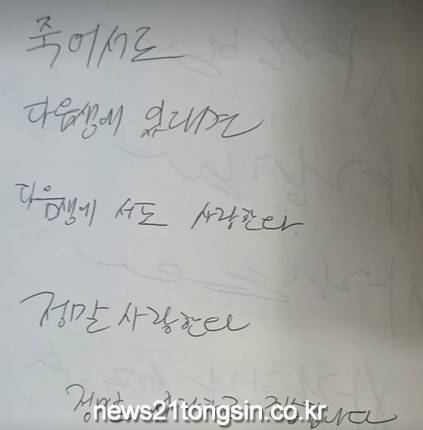 죽어서도
다음생에 있다면
다음생에 서도 사랑한다.
정말 사랑한다
정말
news21tongsin.co.kr